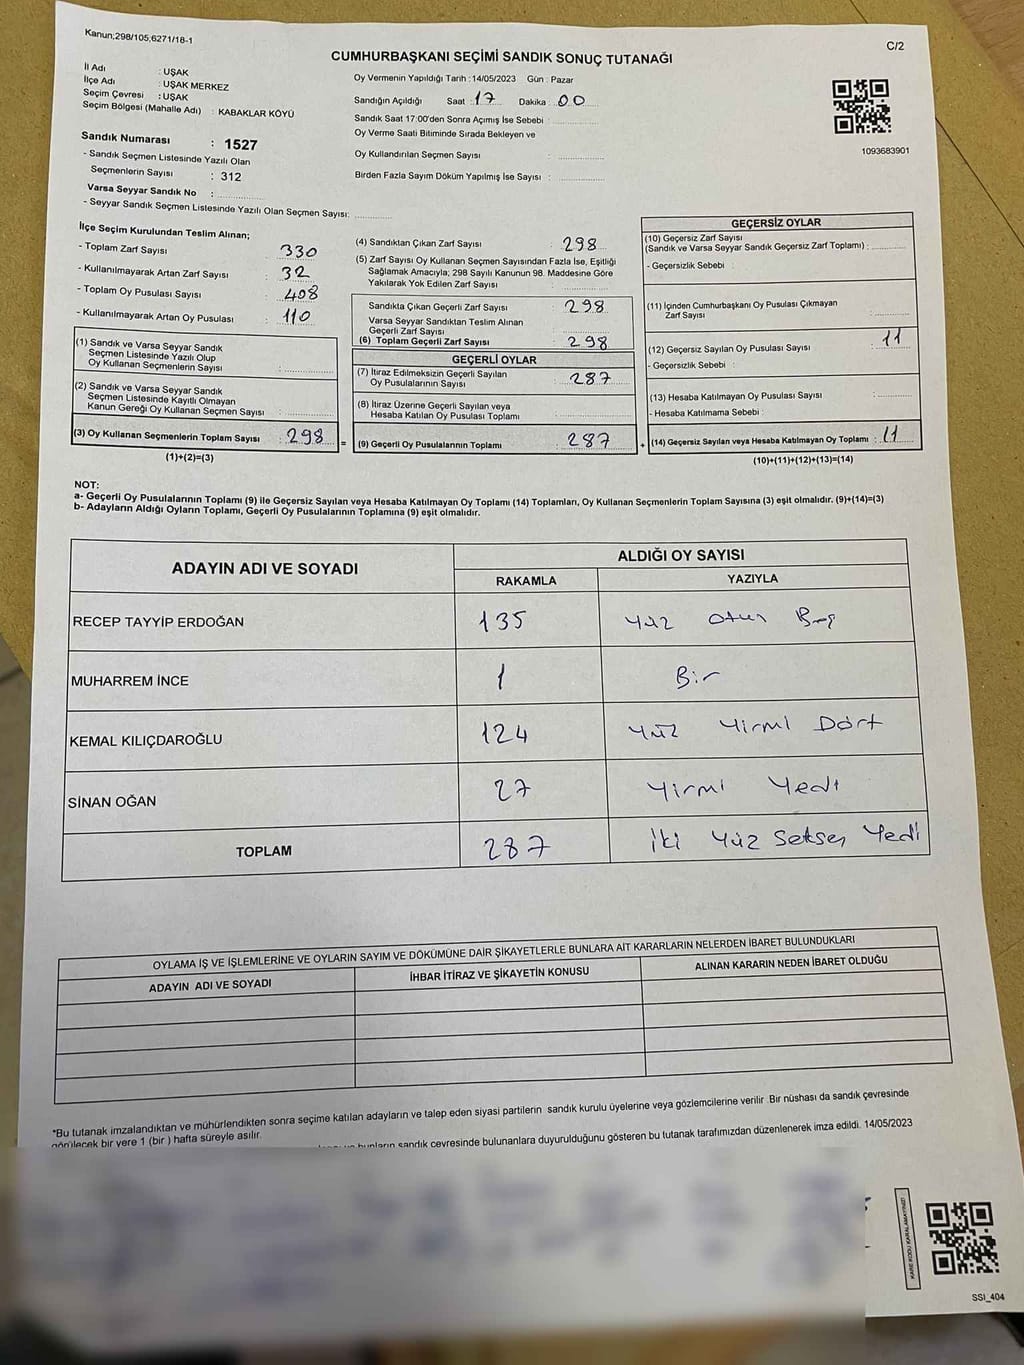 Kanun;298/105;6271/18-1
C/2
CUMHURBAŞKANI SEÇİMİ SANDIK SONUÇ TUTANAĞI
İl Adı : UŞAK
İlçe Adı : UŞAK MERKEZ
Seçim Çevresi : UŞAK
Seçim Bölgesi (Mahalle Adı) : KABAKLAR KÖYÜ
Sandık Numarası : 1527
- Sandık Seçmen Listesinde Yazılı Olan
Seçmenlerin Sayısı : 312
Varsa Seyyar Sandık No :
- Seyyar Sandık Seçmen Listesinde Yazılı Olan Seçmen Sayısı:
Oy Vermenin Yapıldığı Tarih :14/05/2023 Gün : Pazar
Sandığın Açıldığı Saat : 17 Dakika : 00
Sandık Saat 17:00'den Sonra Açımış İse Sebebi :
Oy Verme Saati Bitiminde Sırada Bekleyen ve
Oy Kullandırılan Seçmen Sayısı :
Birden Fazla Sayım Döküm Yapılmış İse Sayısı :
1093683901
İlçe Seçim Kurulundan Teslim Alınan;
- Toplam Zarf Sayısı : 330
- Kullanılmayarak Artan Zarf Sayısı : 32
- Toplam Oy Pusulası Sayısı : 408
- Kullanılmayarak Artan Oy Pusulası : 110
(1) Sandık ve Varsa Seyyar Sandık
Seçmen Listesinde Yazılı Olup
Oy Kullanan Seçmenlerin Sayısı :
(2) Sandık ve Varsa Seyyar Sandık
Seçmen Listesinde Kayıtlı Olmayan
Kanun Gereği Oy Kullanan Seçmen Sayısı :
(3) Oy Kullanan Seçmenlerin Toplam Sayısı : 298
(1)+(2)=(3)
(4) Sandıktan Çıkan Zarf Sayısı : 298
(5) Zarf Sayısı Oy Kullanan Seçmen Sayısından Fazla İse, Eşitliği
Sağlamak Amacıyla; 298 Sayılı Kanunun 98. Maddesine Göre
Yakılarak Yok Edilen Zarf Sayısı :
Sandıkta Çıkan Geçerli Zarf Sayısı : 298
Varsa Seyyar Sandıktan Teslim Alınan
Geçerli Zarf Sayısı :
(6) Toplam Geçerli Zarf Sayısı : 298
GEÇERLİ OYLAR
(7) İtiraz Edilmeksizin Geçerli Sayılan
Oy Pusulalarının Sayısı : 287
(8) İtiraz Üzerine Geçerli Sayılan veya
Hesaba Katılan Oy Pusulası Toplamı :
= (9) Geçerli Oy Pusulalarının Toplamı : 287
GEÇERSİZ OYLAR
(10) Geçersiz Zarf Sayısı
(Sandık ve Varsa Seyyar Sandık Geçersiz Zarf Toplamı) :
- Geçersizlik Sebebi :
(11) İçinden Cumhurbaşkanı Oy Pusulası Çıkmayan
Zarf Sayısı :
(12) Geçersiz Sayılan Oy Pusulası Sayısı : 11
- Geçersizlik Sebebi :
(13) Hesaba Katılmayan Oy Pusulası Sayısı :
- Hesaba Katılmama Sebebi :
+ (14) Geçersiz Sayılan veya Hesaba Katılmayan Oy Toplamı : 11
(10)+(11)+(12)+(13)=(14)
NOT:
a- Geçerli Oy Pusulalarının Toplamı (9) ile Geçersiz Sayılan veya Hesaba Katılmayan Oy Toplamı (14) Toplamları, Oy Kullanan Seçmenlerin Toplam Sayısına (3) eşit olmalıdır. (9)+(14)=(3)
b- Adayların Aldığı Oyların Toplamı, Geçerli Oy Pusulalarının Toplamına (9) eşit olmalıdır.
ADAYIN ADI VE SOYADI
ALDIĞI OY SAYISI
RAKAMLA YAZIYLA
RECEP TAYYİP ERDOĞAN 135 Yüz Otuz Beş
MUHARREM İNCE 1 Bir
KEMAL KILIÇDAROĞLU 124 Yüz Yirmi Dört
SİNAN OĞAN 27 Yirmi Yedi
TOPLAM 287 İki Yüz Seksen Yedi
OYLAMA İŞ VE İŞLEMLERİNE VE OYLARIN SAYIM VE DÖKÜMÜNE DAİR ŞİKAYETLERLE BUNLARA AİT KARARLARIN NELERDEN İBARET BULUNDUKLARI
ADAYIN ADI VE SOYADI İHBAR İTİRAZ VE ŞİKAYETİN KONUSU ALINAN KARARIN NEDEN İBARET OLDUĞU
*Bu tutanak imzalandıktan ve mühürlendikten sonra seçime katılan adayların ve talep eden siyasi partilerin sandık kurulu üyelerine veya gözlemcilerine verilir .Bir nüshası da sandık çevresinde
görülecek bir yere 1 (bir ) hafta süreyle asılır.
bunların sandık çevresinde bulunanlara duyurulduğunu gösteren bu tutanak tarafımızdan düzenlenerek imza edildi. 14/05/2023
KARE KODU KARALAMAYINIZ!
SSI_404